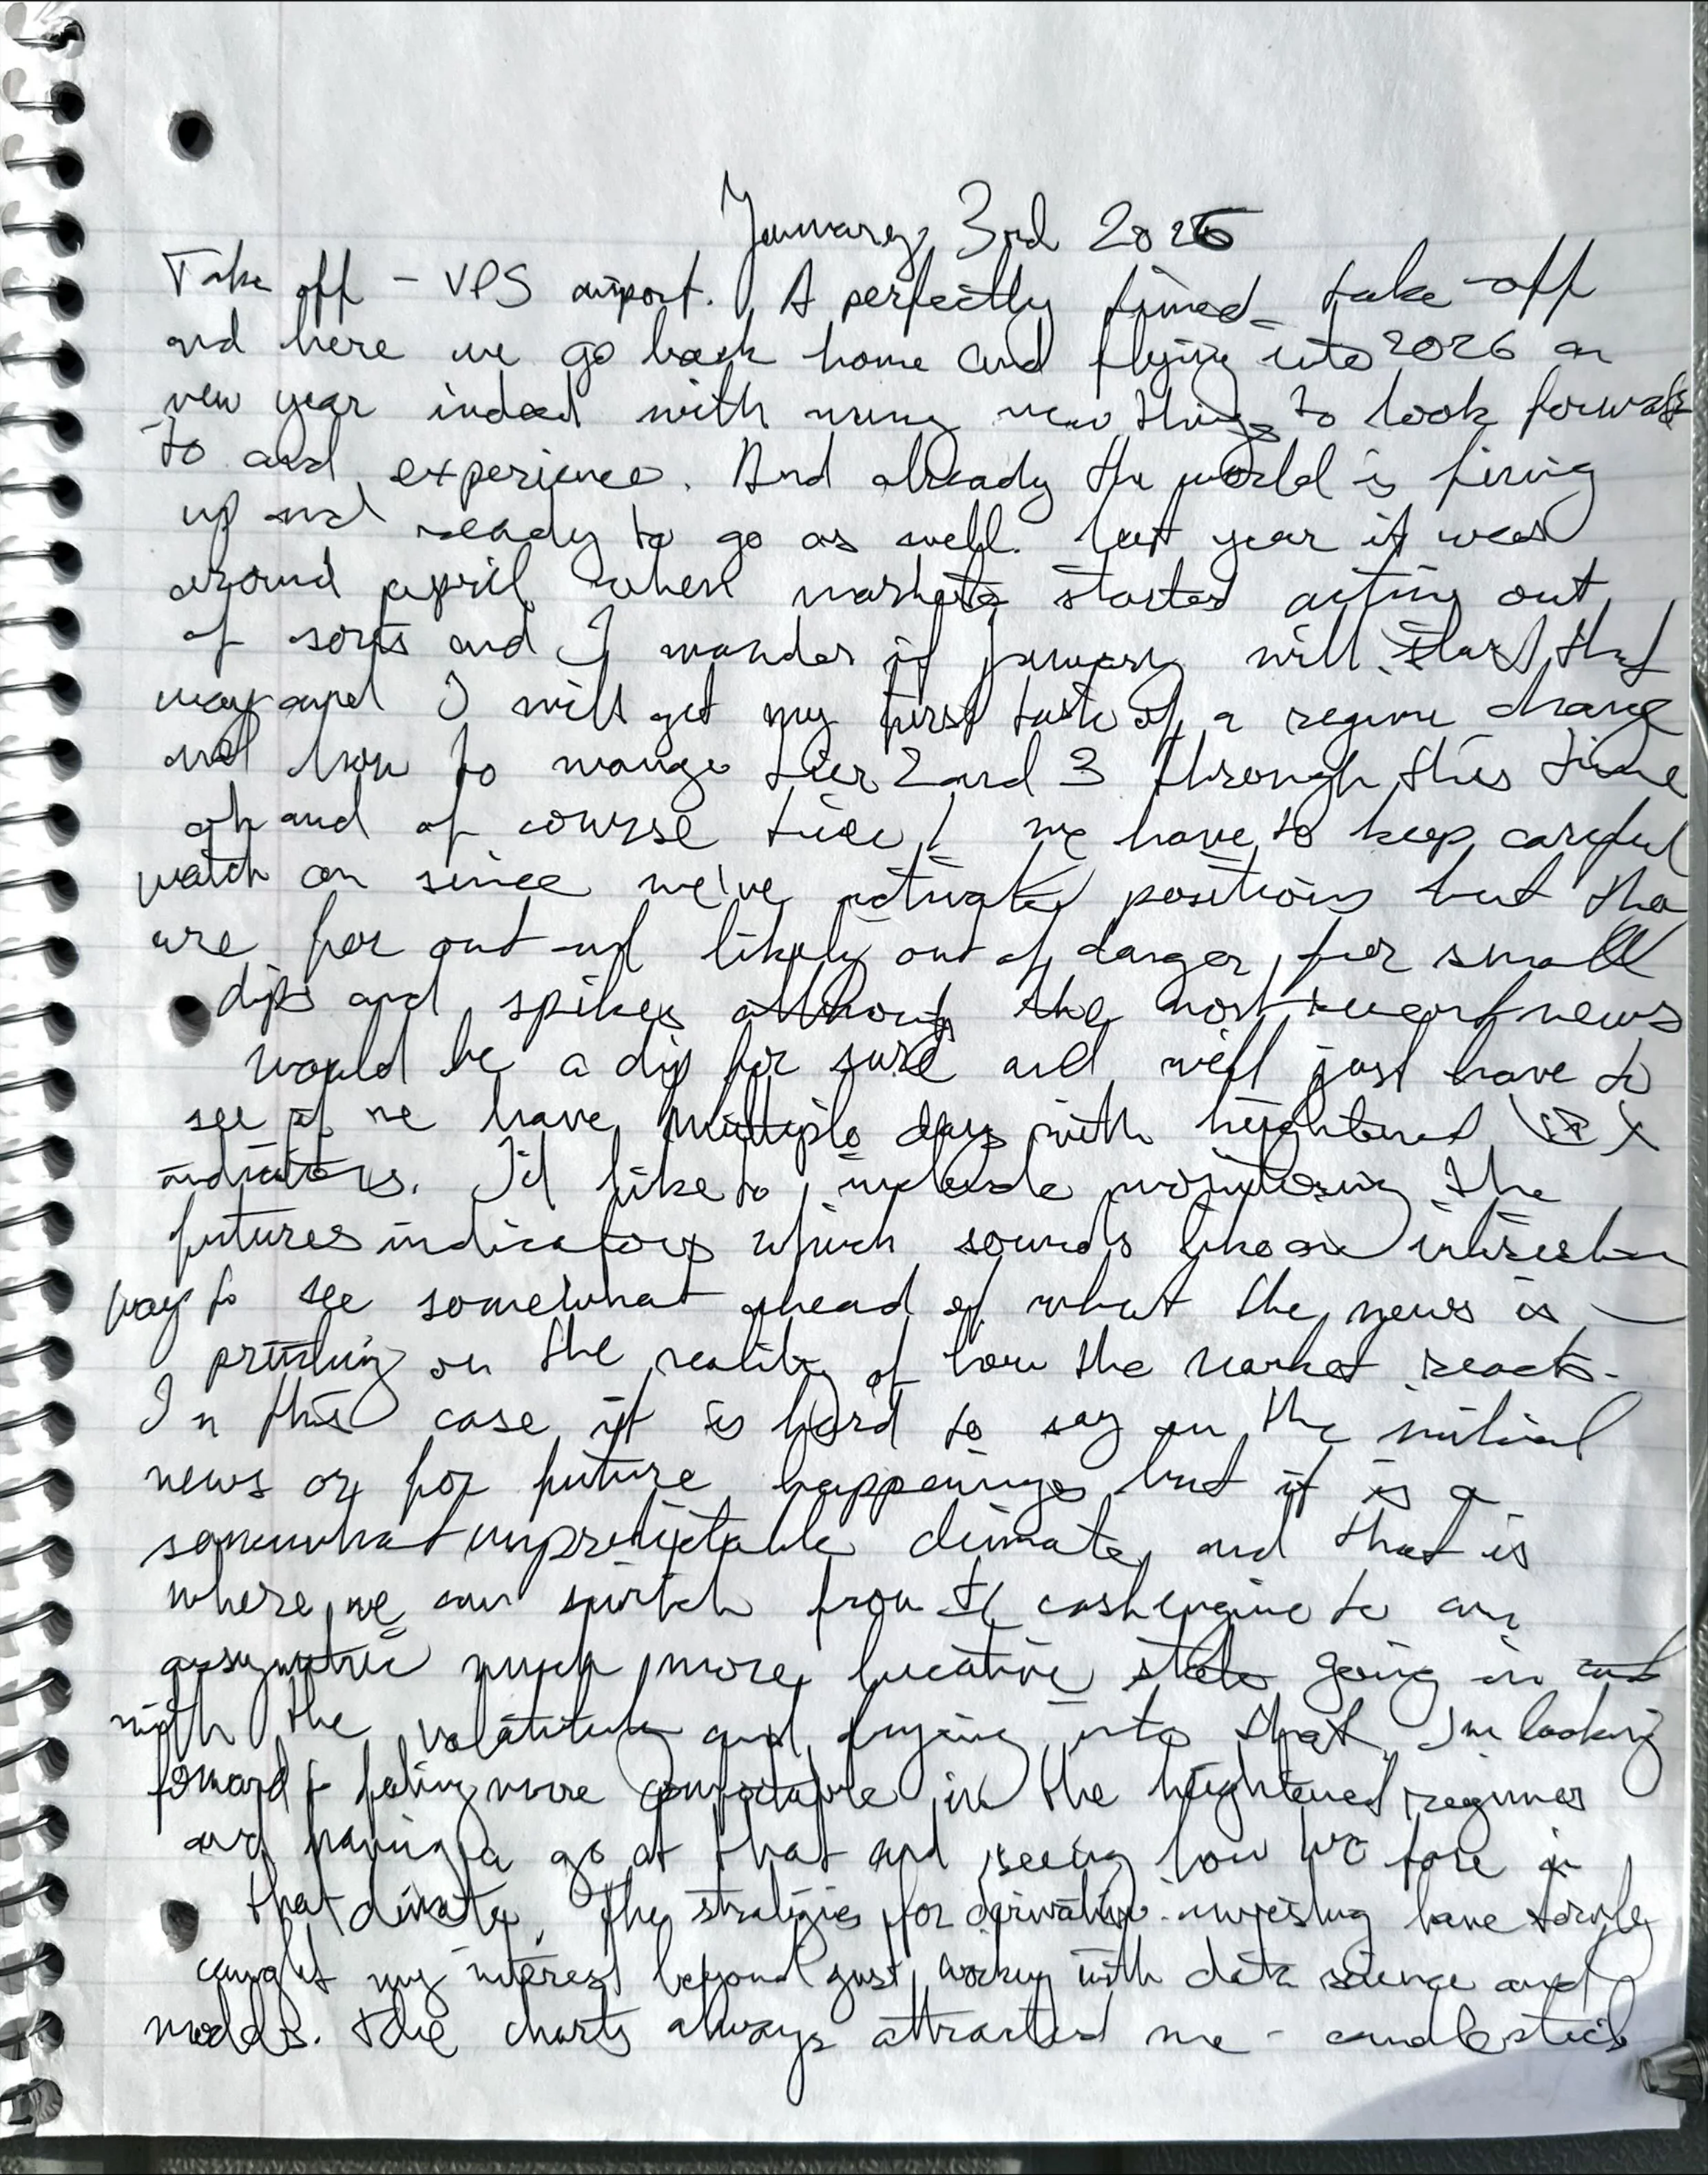 January 3rd 2026
Take off - VPS airport. A perfectly timed take-off
and here we go back home and flying into 2026 a
new year indeed with many new things to look forward
to and experience. And already the world is firing
up and ready to go as well. Last year it was
around april when markets started acting out
of sorts and I wonder if january will start that
way and I will get my first taste of a regime change
and how to manage tier 2 and 3 through this time
oh and of course tier 1 we have to keep careful
watch on since we've positions but tho
are far out and likely out of danger for small
dips and spikes although the most recent news
would be a dip for sure and will just have to
see if we have multiple days with heightened VIX
indicators. I'd like to include monitoring the
futures indicators which sounds like an
way to see somewhat ahead of what the news is
printing on the reality of how the market reacts.
In this case it is hard to say on the initial
news or for future happenings but it is a
somewhat unpredictable climate and that is
where we can switch from cash engine to our
assymetric much more lucative state going in
with the and into that. I'm looking
forward to feeling more comfortable in the heightened regimes
and having a go at that and seeing how we fare in
that climate. The strategies for derivative investing have
caught my interest beyond just working with data science and
models. The charts always attracted me - candlestick